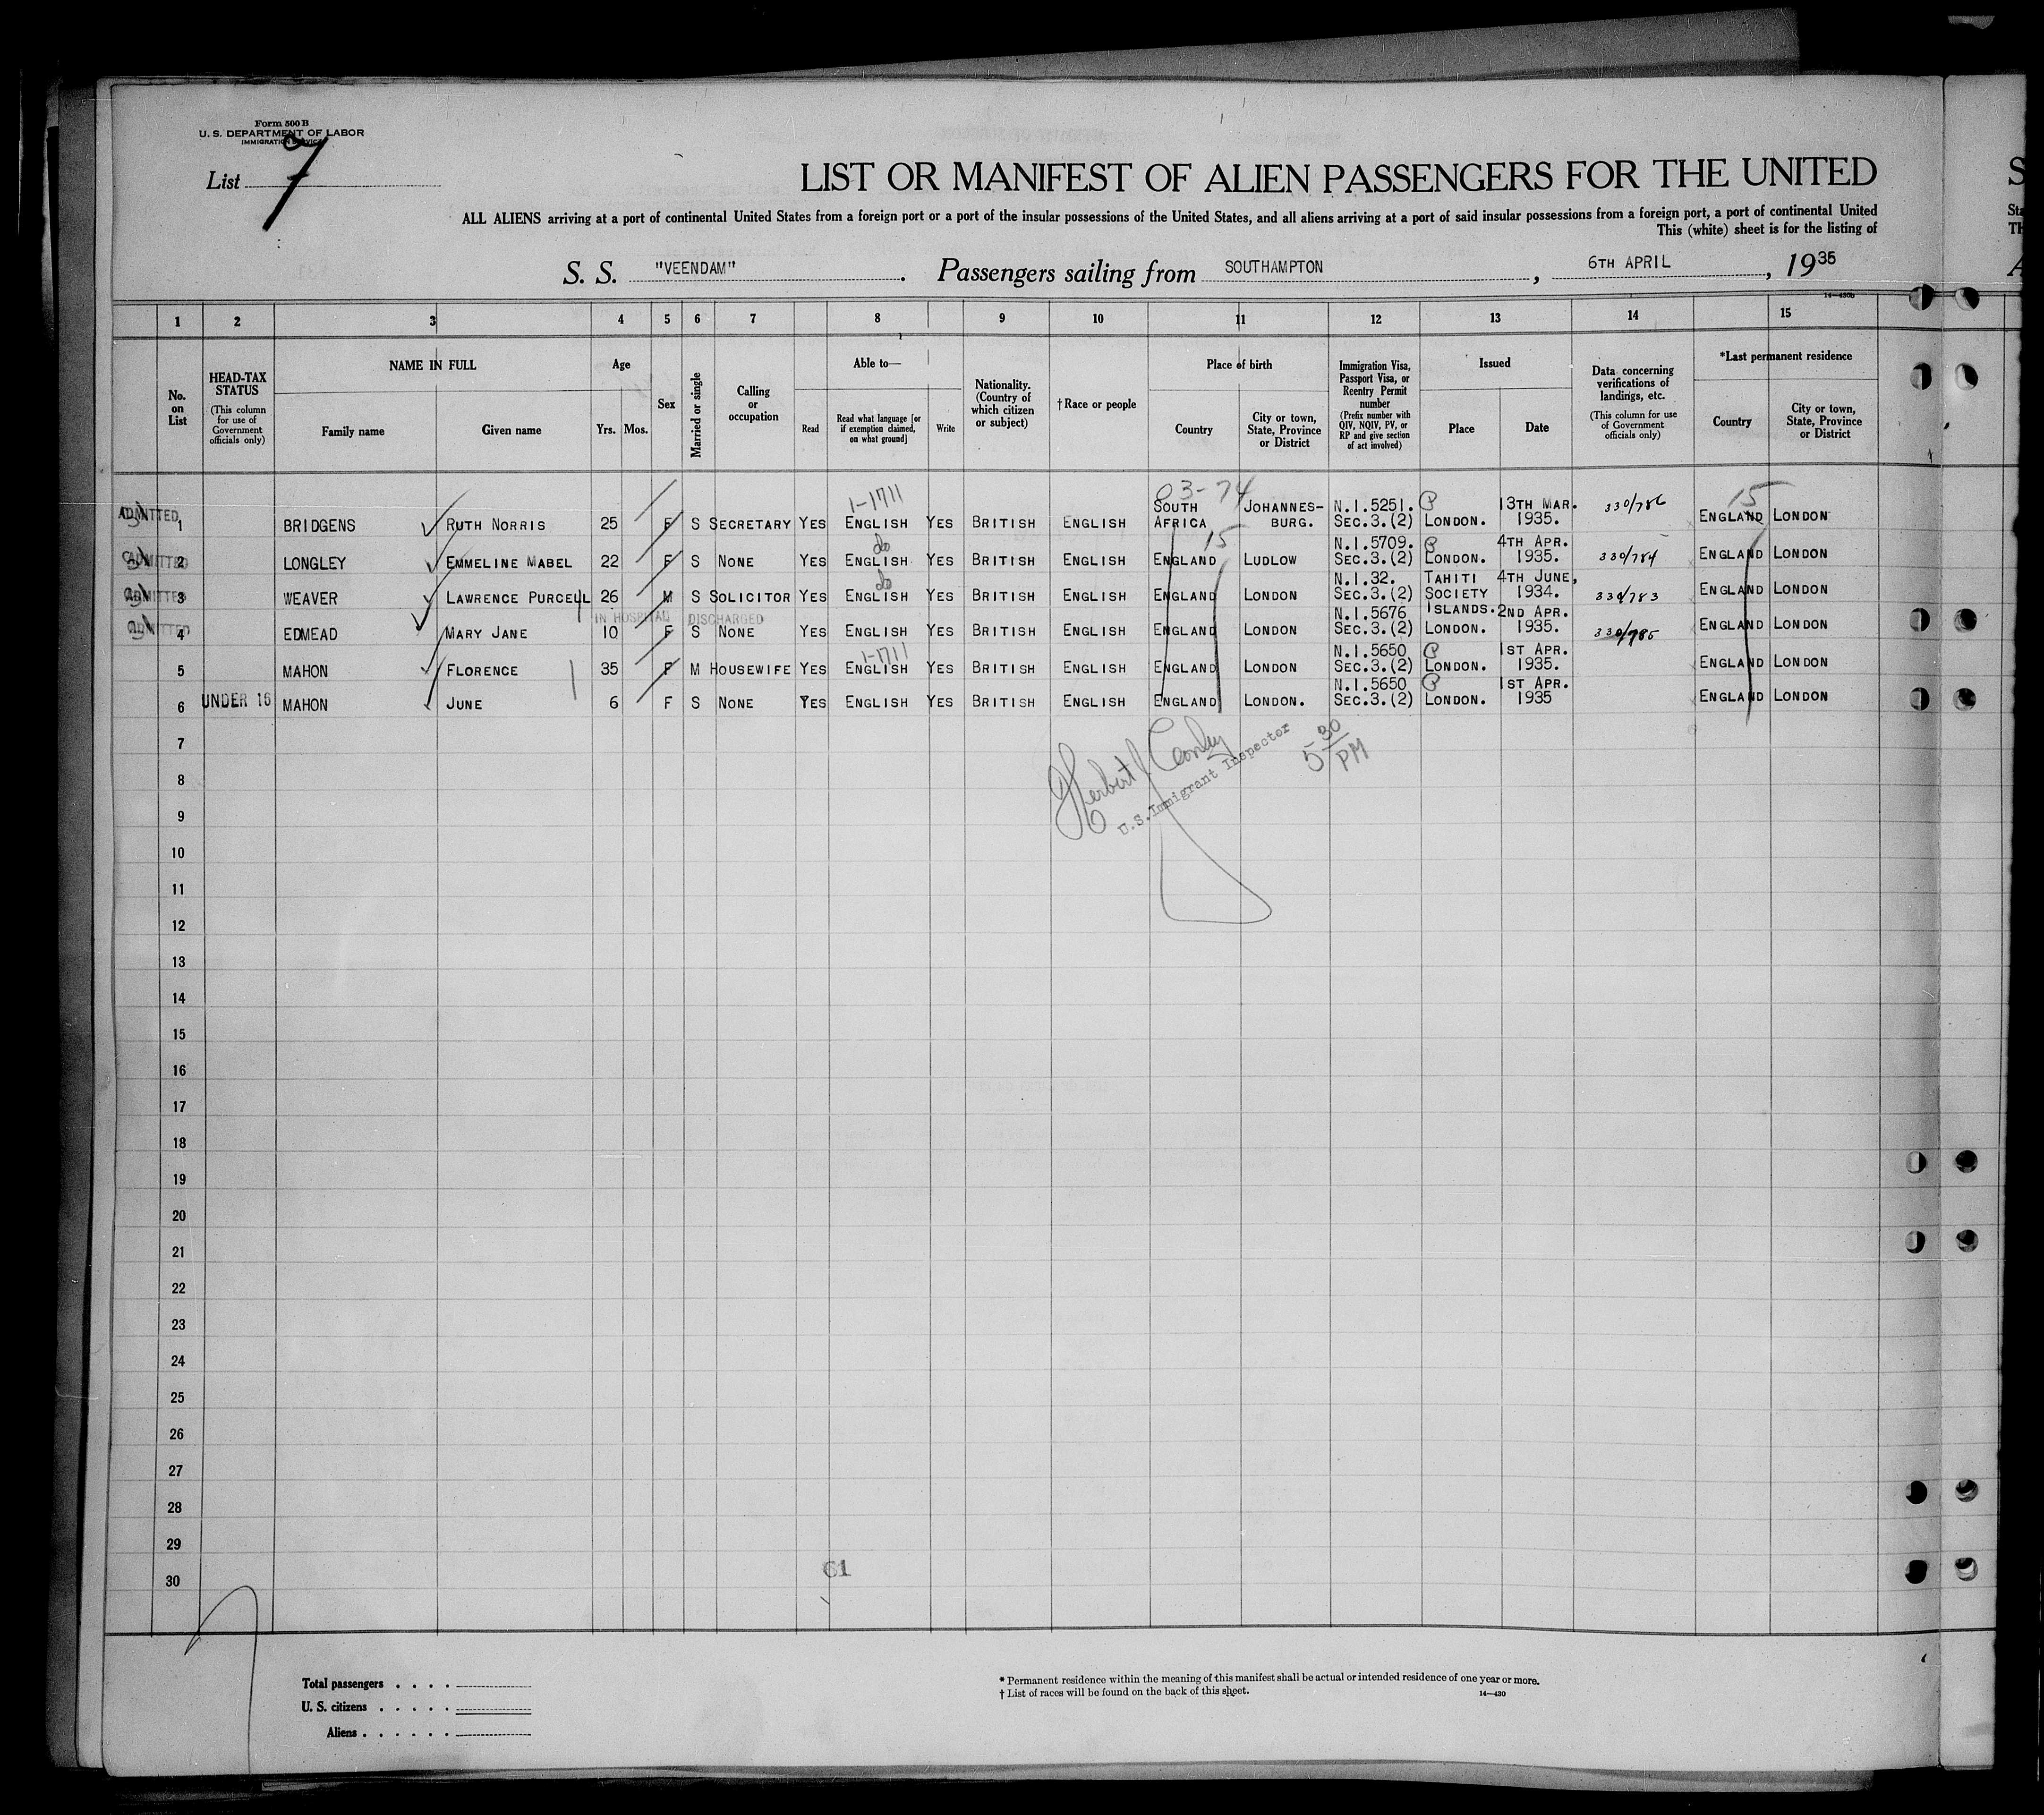 Form 500 B
U. S. DEPARTMENT OF LABOR
IMMIGRATION SERVICE
List 7
LIST OR MANIFEST OF ALIEN PASSENGERS FOR THE UNITED
ALL ALIENS arriving at a port of continental United States from a foreign port or a port of the insular possessions of the United States, and all aliens arriving at a port of said insular possessions from a foreign port, a port of continental United
This (white) sheet is for the listing of
S. S. "VEENDAM". Passengers sailing from SOUTHAMPTON, 6TH APRIL, 1935
14-430b
1 2 3 4 5 6 7 8 9 10 11 12 13 14 15
No. on List
HEAD-TAX STATUS (This column for use of Government officials only)
NAME IN FULL
Family name Given name
Age
Yrs. Mos.
Sex
Married or single
Calling or occupation
Able to—
Read Read what language [or if exemption claimed, on what ground] Write
Nationality. (Country of which citizen or subject)
†Race or people
Place of birth
Country City or town, State, Province or District
Immigration Visa, Passport Visa, or Reentry Permit number (Prefix number with QIV, NQIV, PV, or RP and give section of act involved)
Issued
Place Date
Data concerning verifications of landings, etc. (This column for use of Government officials only)
*Last permanent residence
Country City or town, State, Province or District
1-1711 03-74 15
ADMITTED 1 BRIDGENS RUTH NORRIS 25 F S SECRETARY YES ENGLISH YES BRITISH ENGLISH SOUTH AFRICA JOHANNES-BURG. N.I.5251. SEC.3.(2) LONDON. 13TH MAR. 1935. 330/786 ENGLAND LONDON
do 15
ADMITTED 2 LONGLEY EMMELINE MABEL 22 F S NONE YES ENGLISH YES BRITISH ENGLISH ENGLAND LUDLOW N.I.5709. SEC.3.(2) LONDON. 4TH APR. 1935. 330/784 ENGLAND LONDON
do
ADMITTED 3 WEAVER LAWRENCE PURCELL 26 M S SOLICITOR YES ENGLISH YES BRITISH ENGLISH ENGLAND LONDON N.I.32. SEC.3.(2) TAHITI SOCIETY ISLANDS. 4TH JUNE, 1934. 330/783 ENGLAND LONDON
IN HOSPITAL DISCHARGED
ADMITTED 4 EDMEAD MARY JANE 10 F S NONE YES ENGLISH YES BRITISH ENGLISH ENGLAND LONDON N.I.5676 SEC.3.(2) LONDON. 2ND APR. 1935. 330/785 ENGLAND LONDON
1-1711
5 MAHON FLORENCE 35 F M HOUSEWIFE YES ENGLISH YES BRITISH ENGLISH ENGLAND LONDON N.I.5650 SEC.3.(2) LONDON. 1ST APR. 1935. ENGLAND LONDON
6 UNDER 16 MAHON JUNE 6 F S NONE YES ENGLISH YES BRITISH ENGLISH ENGLAND LONDON. N.I.5650 SEC.3.(2) LONDON. 1ST APR. 1935 ENGLAND LONDON
7
Herbert J
U.S. Immigrant Inspector
5 30 PM
8
9
10
11
12
13
14
15
16
17
18
19
20
21
22
23
24
25
26
27
28
29
61
30
Total passengers
U. S. citizens
Aliens
* Permanent residence within the meaning of this manifest shall be actual or intended residence of one year or more.
† List of races will be found on the back of this sheet.
14-430